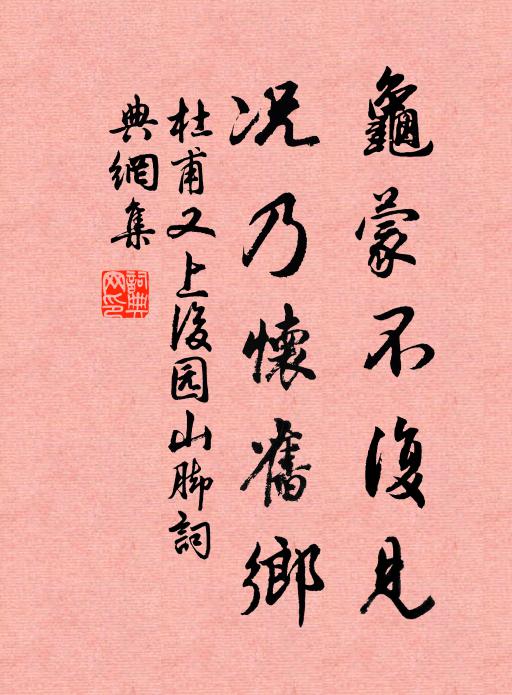 龜蒙不復見
况乃懷舊鄉
杜甫又上後园山脚詞
典網集
詞典
网印